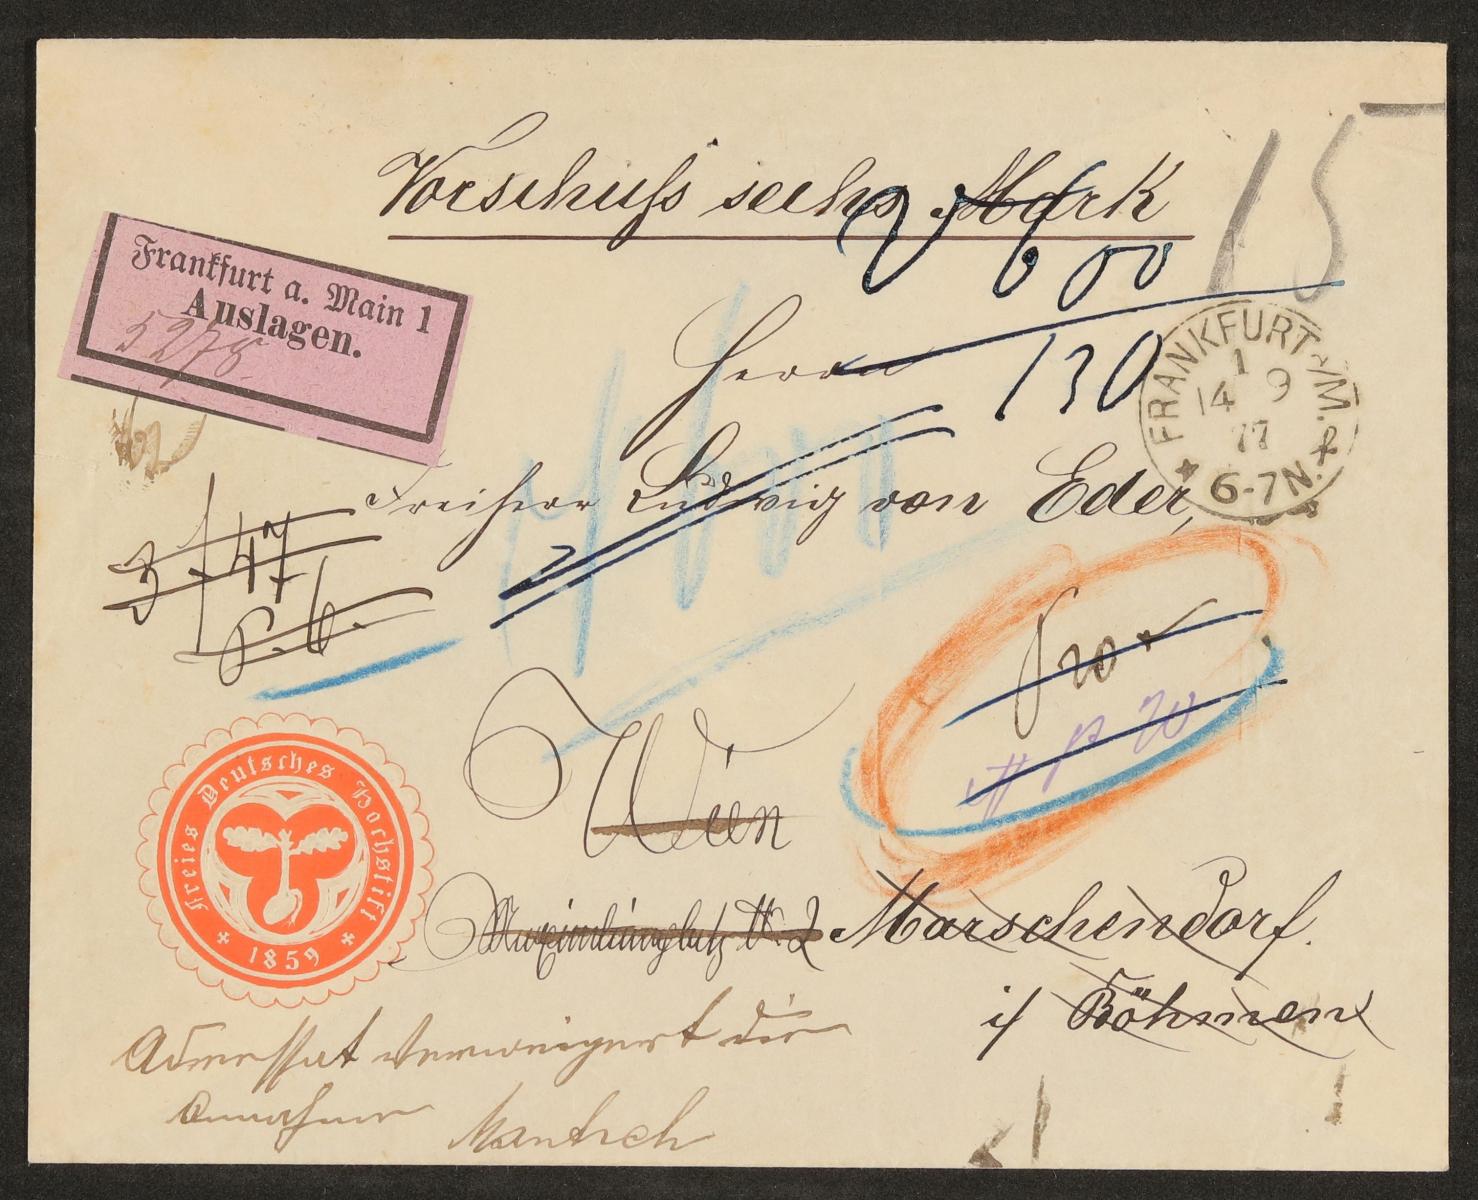 Vorschuß sechs Mark
15
600
130
Frankfurt a. Main 1
Auslagen.
5278
Herrn
Freiherr Ludwig von Eder,
FRANKFURT a/M.
1
14 9
77
6-7N.
3 f 47
Wien
Freies Deutsches Hochstift
1859
Maximilianplatz N. 2 Marschendorf.
i/ Böhmen
Adressat verweigert die
Annahme